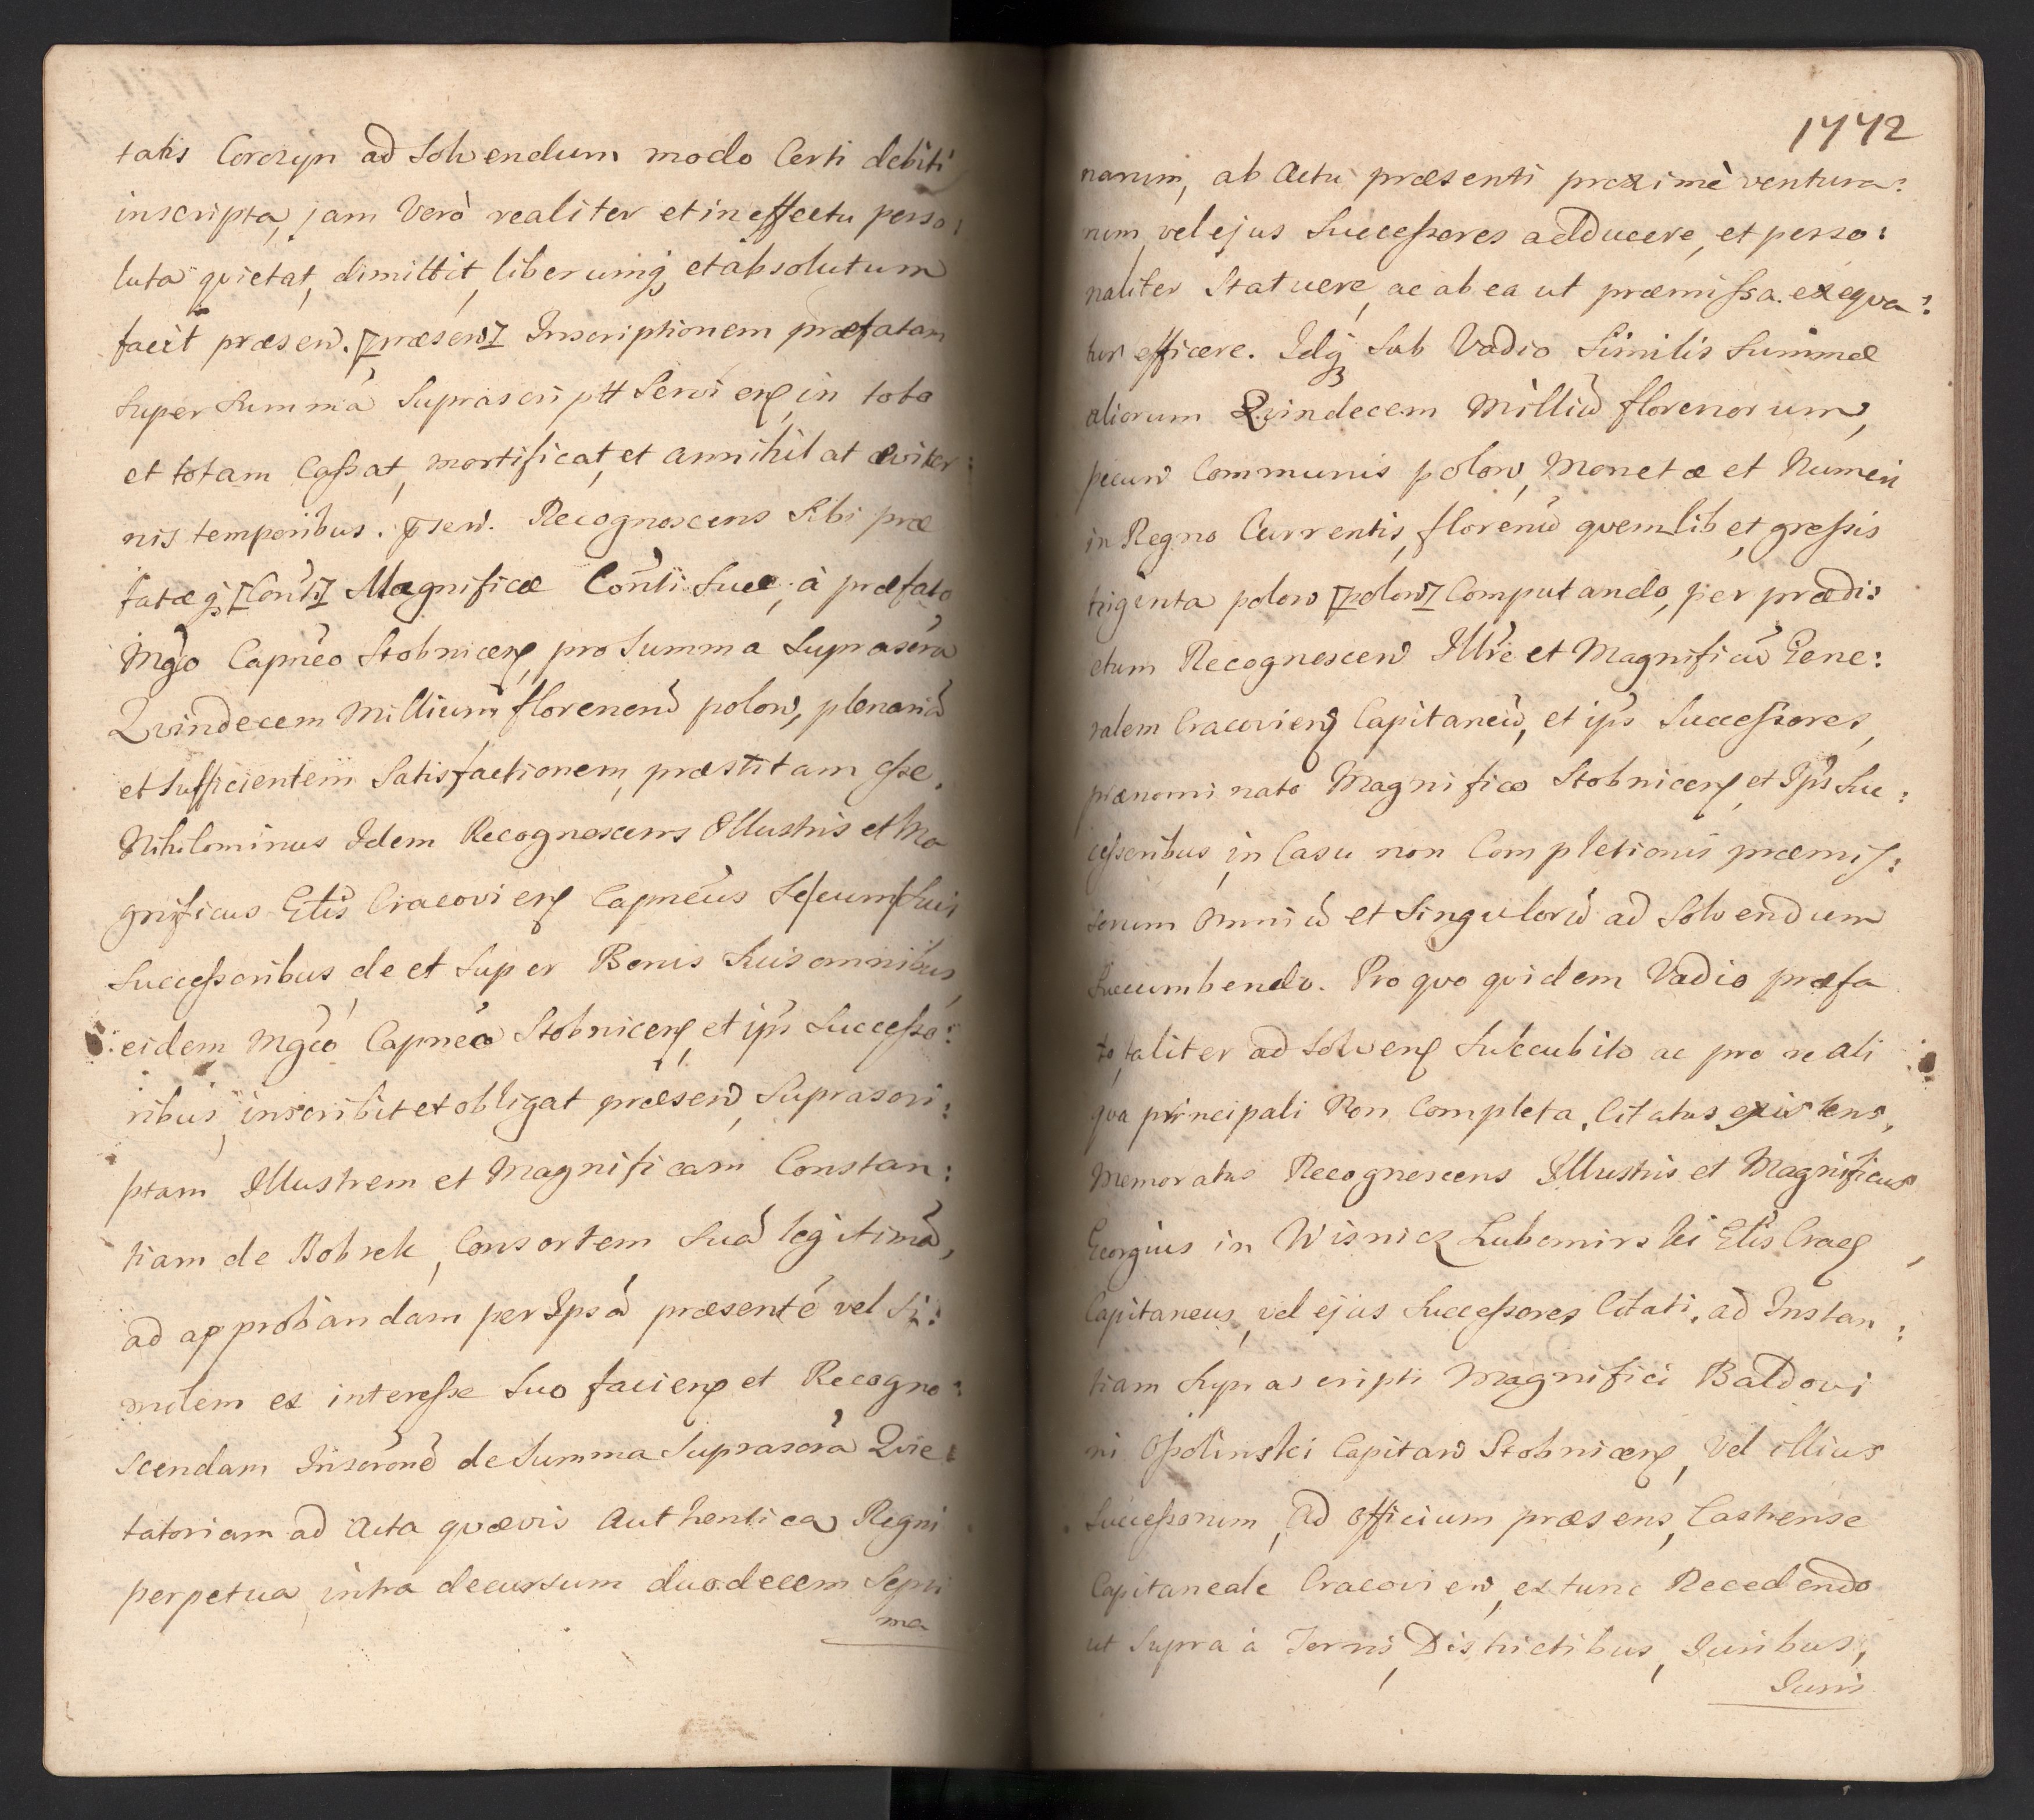 tatis Corczyn ad Solvendum modo Certi debiti
inscripta, jam Verò realiter et in effectu perso:
luta qvietat, dimittit, liberumq; et absolutum
facit præsen. [præsen] Inscriptionem præfatam
Super Summa Suprascriptt Servien, in toto
et totam Cassat, mortificat, et annihilat æviter:
nis temporibus. psen. Recognoscens Sibi præ
fatæq; [Conti] Magnificæ Conti Suæ, à præfato
Mgco Capneo Stobnicen, pro Summa Suprascra
Qvindecem Millium florenorũ polon, plenariã
et Sufficientem Satisfactionem, præstitam esse.
Nihilominus Idem Recognoscens Illustris et Ma
gnificus Glis Cracovien Capneus Se/cum/Suis
Successoribus de et Super Bonis Suis omnibus,
eidem Mgco Capneo Stobnicen, et ipsi Successo:
ribus, inscribit et obligat præsen, Suprascri:
ptam Illustrem et Magnificam Constan:
tiam de Bobrek, Consortem Suã legitimã,
ad approbandam per Ipsã præsentẽ vel Si:
milem ex interesse Suo facien et Recogno:
scendam Inscrõnẽ de Summa Suprascra Qvie:
tatoriam ad Acta qvævis Authentica Regni
perpetua, intra decursum duodecem Septi
ma
1772
narum, ab Actu præsenti proximè ventura:
rum, vel ejus Successores adducere, et perso:
naliter Statuere, ac ab ea ut præmissa exeqva:
tur efficere. Idq; Sub Vadio Similis Summæ
aliorum Qvindecem Milliũ florenorum,
pecun Communis polon, Monetæ et Numeri
in Regno Currentis, florenũ qvemlibet, grossis
triginta polon [polon] Computando, per prædi:
ctum Recognoscen Illre et Magnificũ Gene:
ralem Cracovien Capitaneũ, et ips Successores,
prænominato Magnifico Stobnicen, et Ips Suc:
cessoribus, in Casu non Completionis præmis:
sorum Omniũ et Singulorũ ad Solvendum
Succumbendo. Pro qvo qvidem Vadio præfa
to, taliter ad Solven Succubito ac pro re ali
qva principali Non Completa, Citatus existens,
Memoratus Recognoscens Illustris et Magnificus
Georgius in Wisnicz Lubomirski Glis Crac,
Capitaneus, vel ejus Successores Citati, ad Instan:
tiam Suprascripti Magnifici Baldovi
ni Ossolinski Capitan Stobnicen, vel illius
Successorum, Ad Officium præsens, Castrense
Capitaneale Cracovien, ex tunc Recedendo
ut Supra à Terris, Districtibus, Juribus,
Juris